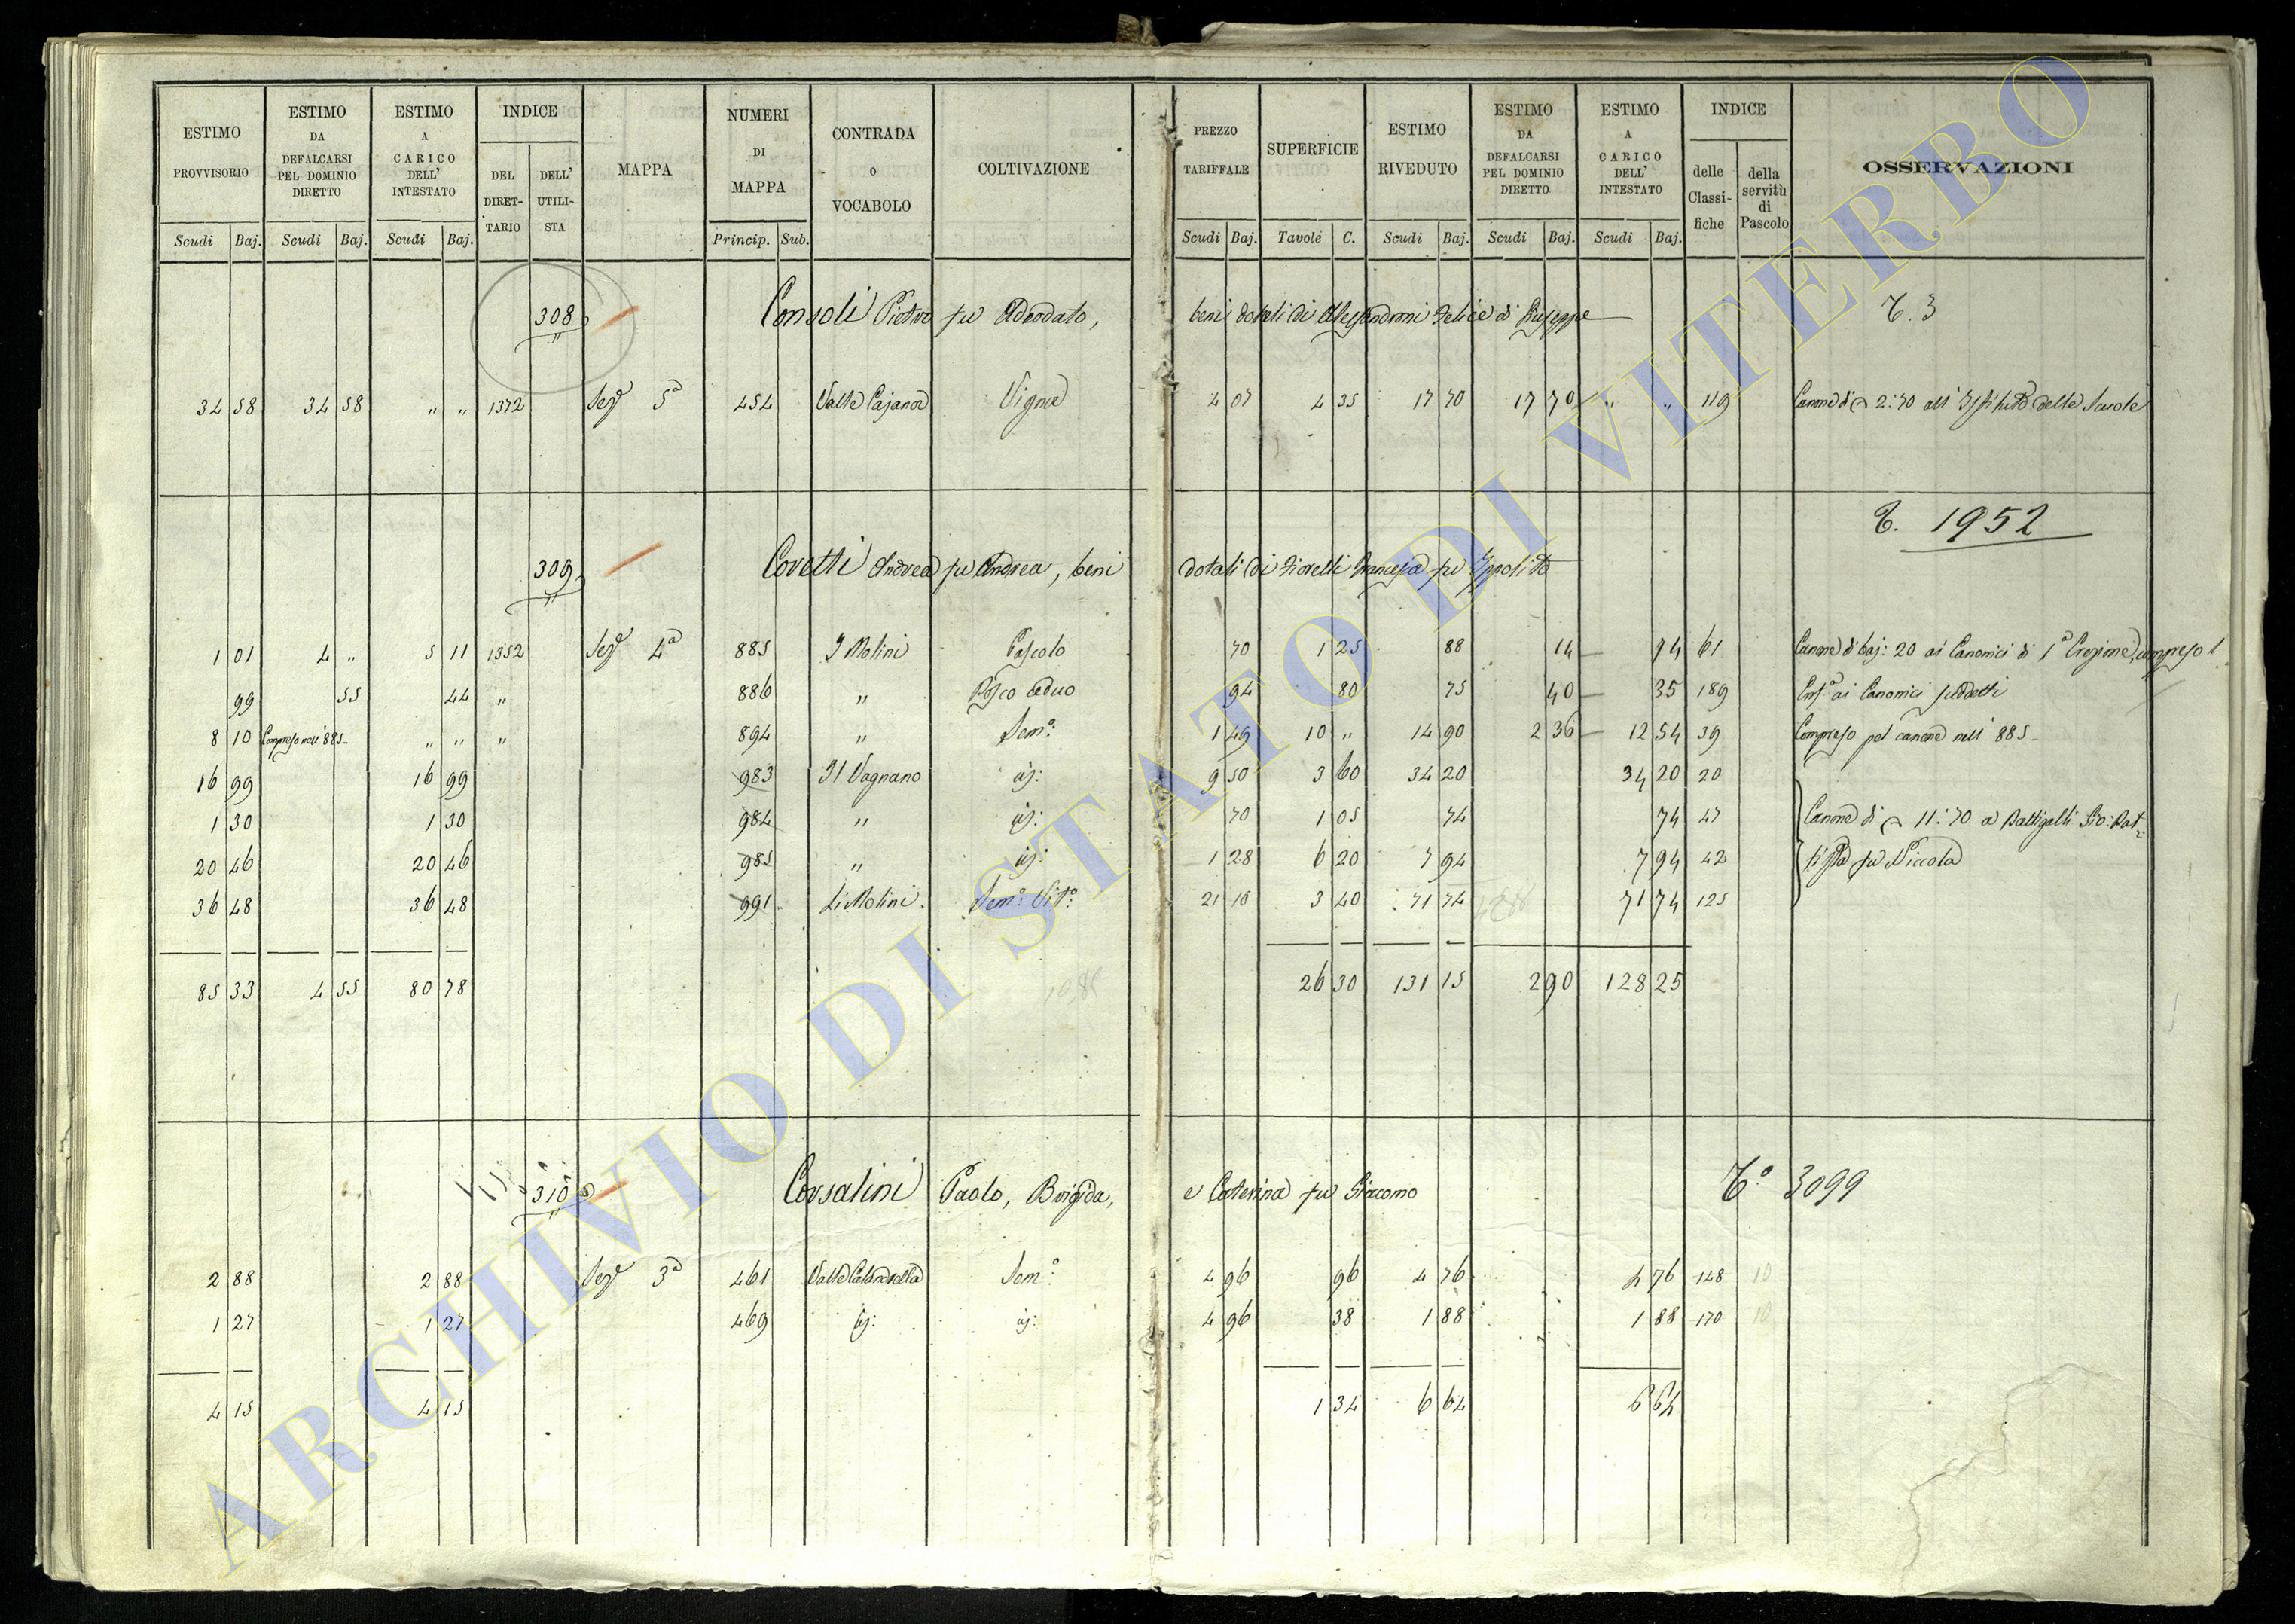 ESTIMO PROVVISORIO | ESTIMO DA DEFALCARSI PEL DOMINIO DIRETTO | ESTIMO A CARICO DELL' INTESTATO | INDICE | MAPPA | NUMERI DI MAPPA | CONTRADA o VOCABOLO | COLTIVAZIONE | PREZZO TARIFFALE | SUPERFICIE | ESTIMO RIVEDUTO | ESTIMO DA DEFALCARSI PEL DOMINIO DIRETTO | ESTIMO A CARICO DELL' INTESTATO | INDICE | OSSERVAZIONI
DEL DIRETTARIO | DELL' UTILISTA | delle Classifiche | della servitù di Pascolo
Scudi | Baj. | Scudi | Baj. | Scudi | Baj. | Princip. | Sub. | Scudi | Baj. | Tavole | C. | Scudi | Baj. | Scudi | Baj. | Scudi | Baj.
308 Consoli Pietro fu Adeodato, beni dotali di Alessandroni Felice di Giuseppe T. 3
34 58 | 34 58 | " " | 1372 | Sez.e 5a | 454 | Valle Cajana | Vigna | 4 07 | 4 35 | 17 70 | 17 70 | " " | 119 | Canone di 2:70 all' Istituto delle Scuole
T. 1952
309 Covetti Andrea fu Andrea, beni dotali di Fiorelli Francesca fu Ippolito
1 01 | 4 " | 5 11 | 1352 | Sez.e 4a | 885 | I Molini | Pascolo | 70 | 1 25 | 88 | 14 | 74 | 61 | Canone di baj: 20 ai Canonici di 1a Erezione, compreso l
99 | 55 | 44 | " | 886 | " | Bosco ceduo | 94 | 80 | 75 | 40 | 35 | 189 | ai Canonici suddetti
8 10 | Compreso nell' 885 | " " | " | 894 | " | Sem:o | 1 49 | 10 " | 14 90 | 2 36 | 12 54 | 39 | Compreso pel canone nell' 885
16 99 | 16 99 | 983 | Il Vagnano | id: | 9 50 | 3 60 | 34 20 | 34 20 | 20
1 30 | 1 30 | 984 | " | id: | 70 | 1 05 | 74 | 74 | 47 | Canone di 11:70 a Battigalli Gio: Bat-
20 46 | 20 46 | 985 | " | id: | 1 28 | 6 20 | 7 94 | 7 94 | 42 | tista fu Niccola
36 48 | 36 48 | 991 | Li Molini | Sem:o Vit:o | 21 10 | 3 40 | 71 74 | 71 74 | 125
85 33 | 4 55 | 80 78 | 26 30 | 131 15 | 2 90 | 128 25
310 Corsalini Paolo, Brigida, e Caterina fu Giacomo T.o 3099
2 88 | 2 88 | Sez.e 3a | 461 | Valle Calandrella | Sem:o | 4 96 | 96 | 4 76 | 4 76 | 148 | 10
1 27 | 1 27 | 469 | id: | id: | 4 96 | 38 | 1 88 | 1 88 | 170 | 10
4 15 | 4 15 | 1 34 | 6 64 | 6 64
ARCHIVIO DI STATO DI VITERBO